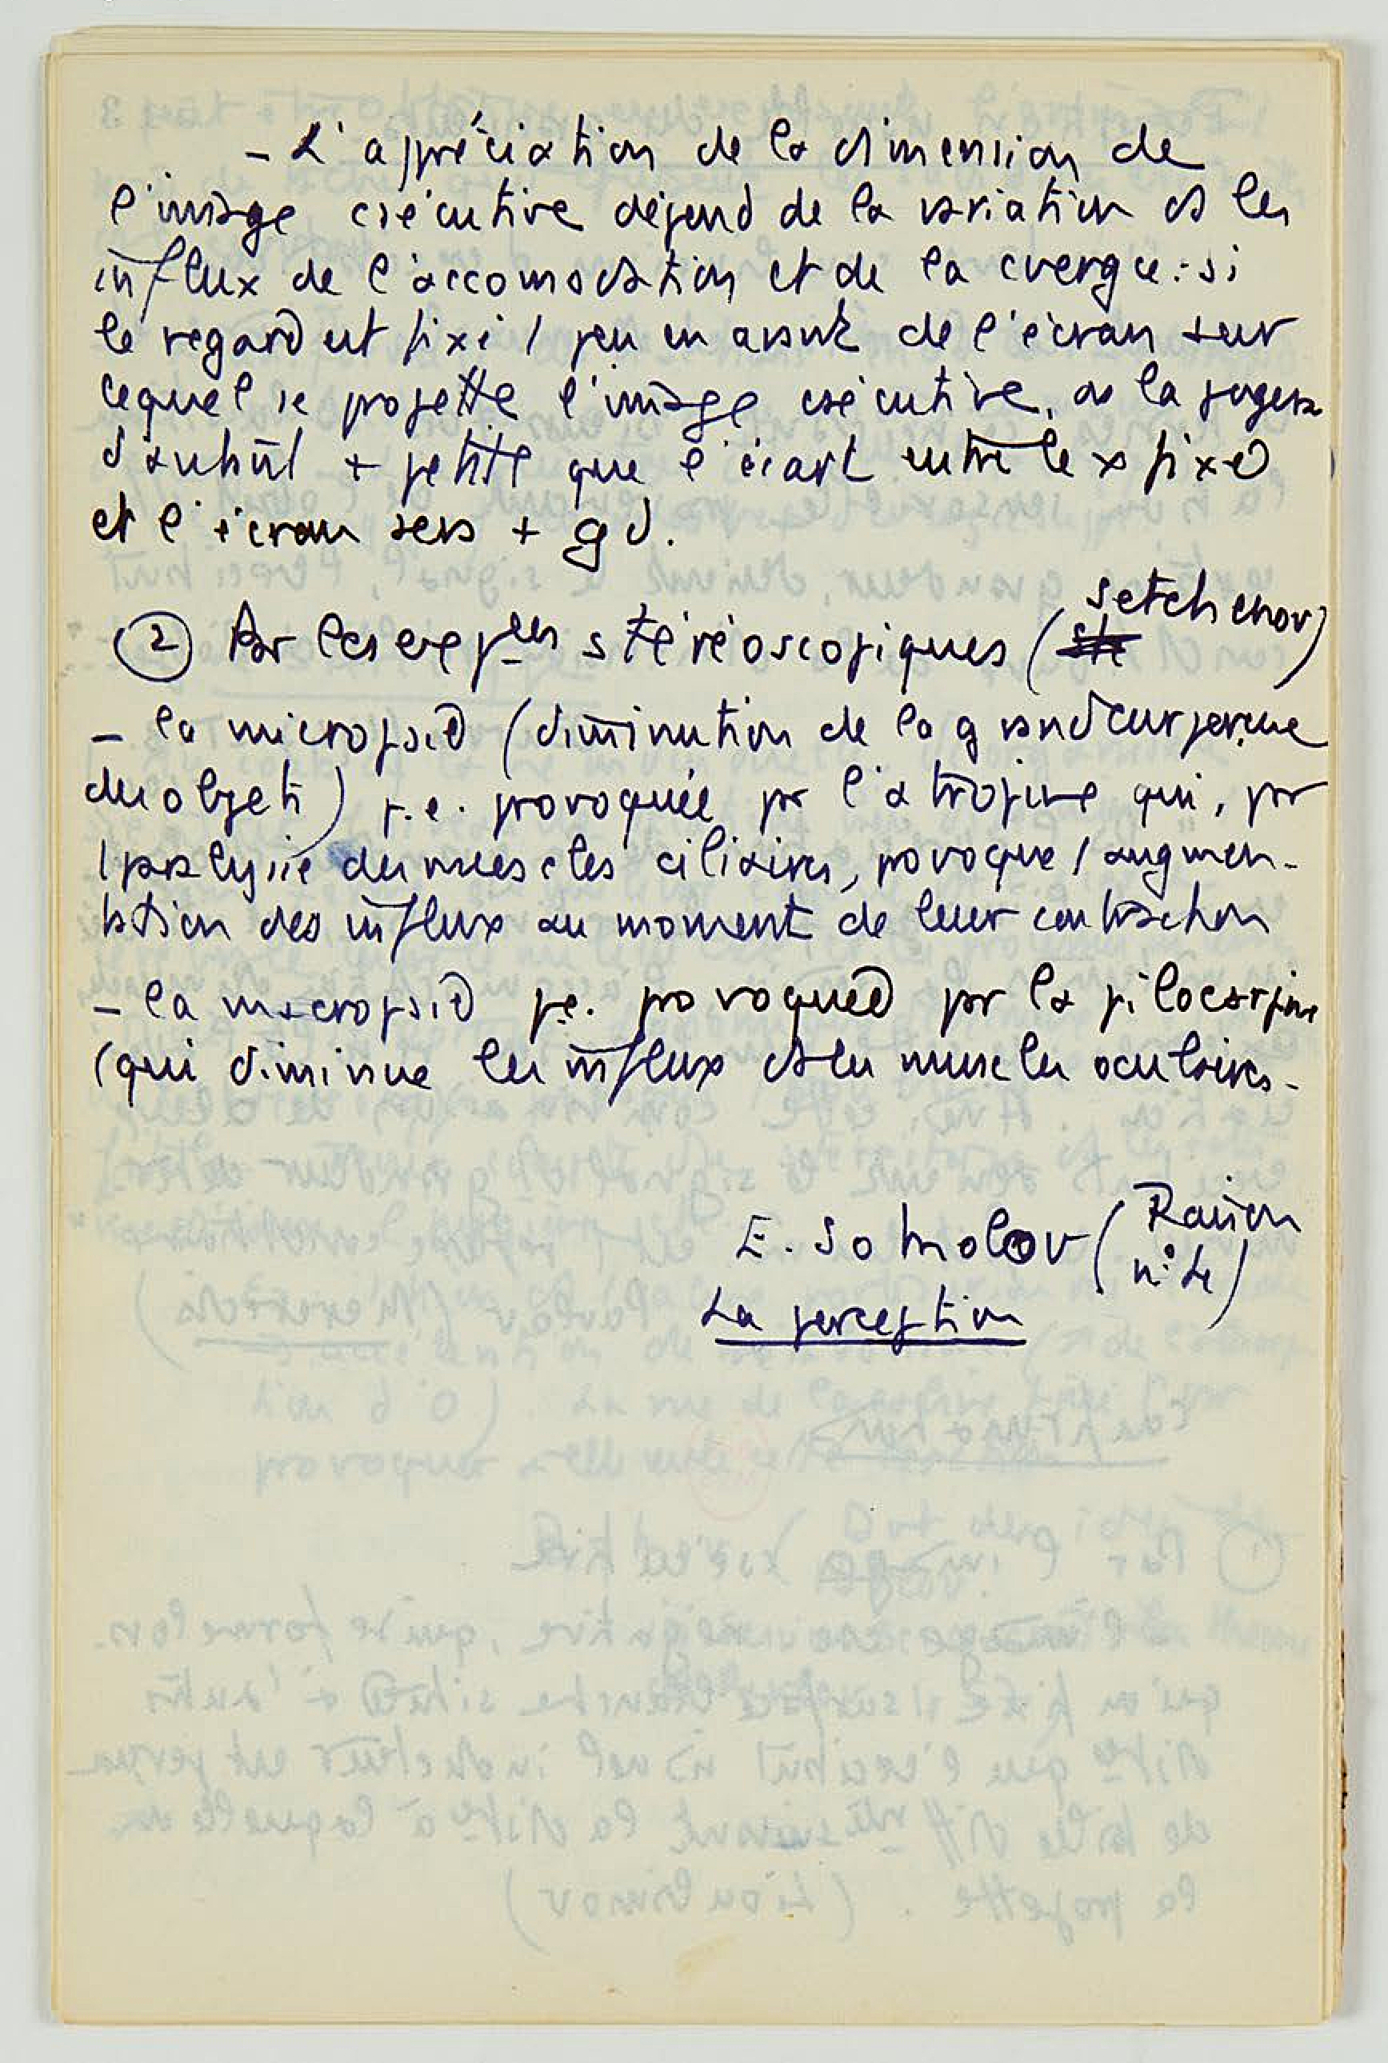 - L'appréciation de la dimension de
l'image exécutive dépend de la variation ds les
influx de l'accomodation et de la cvergce : si
le regard est fixé / peu en avant de l'écran sur
lequel se projette l'image exécutive, on la jugera
d'autant + petite que l'écart entre le x fixé
et l'écran sera + gd.
② Par les expces stéréoscopiques (Setchenov)
- la micropsie (diminution de la grandeur perçue
des objets) p.e. provoquée pr l'atropine qui, pr
/ paralysie des muscles ciliaires, provoque / augmen-
tation des influx au moment de leur contraction
- la macropsie p.e. provoquée pr la pilocarpine
(qui diminue les influx ds les muscles oculaires.
E. Sokolov (Raison
n° 4)
La perception